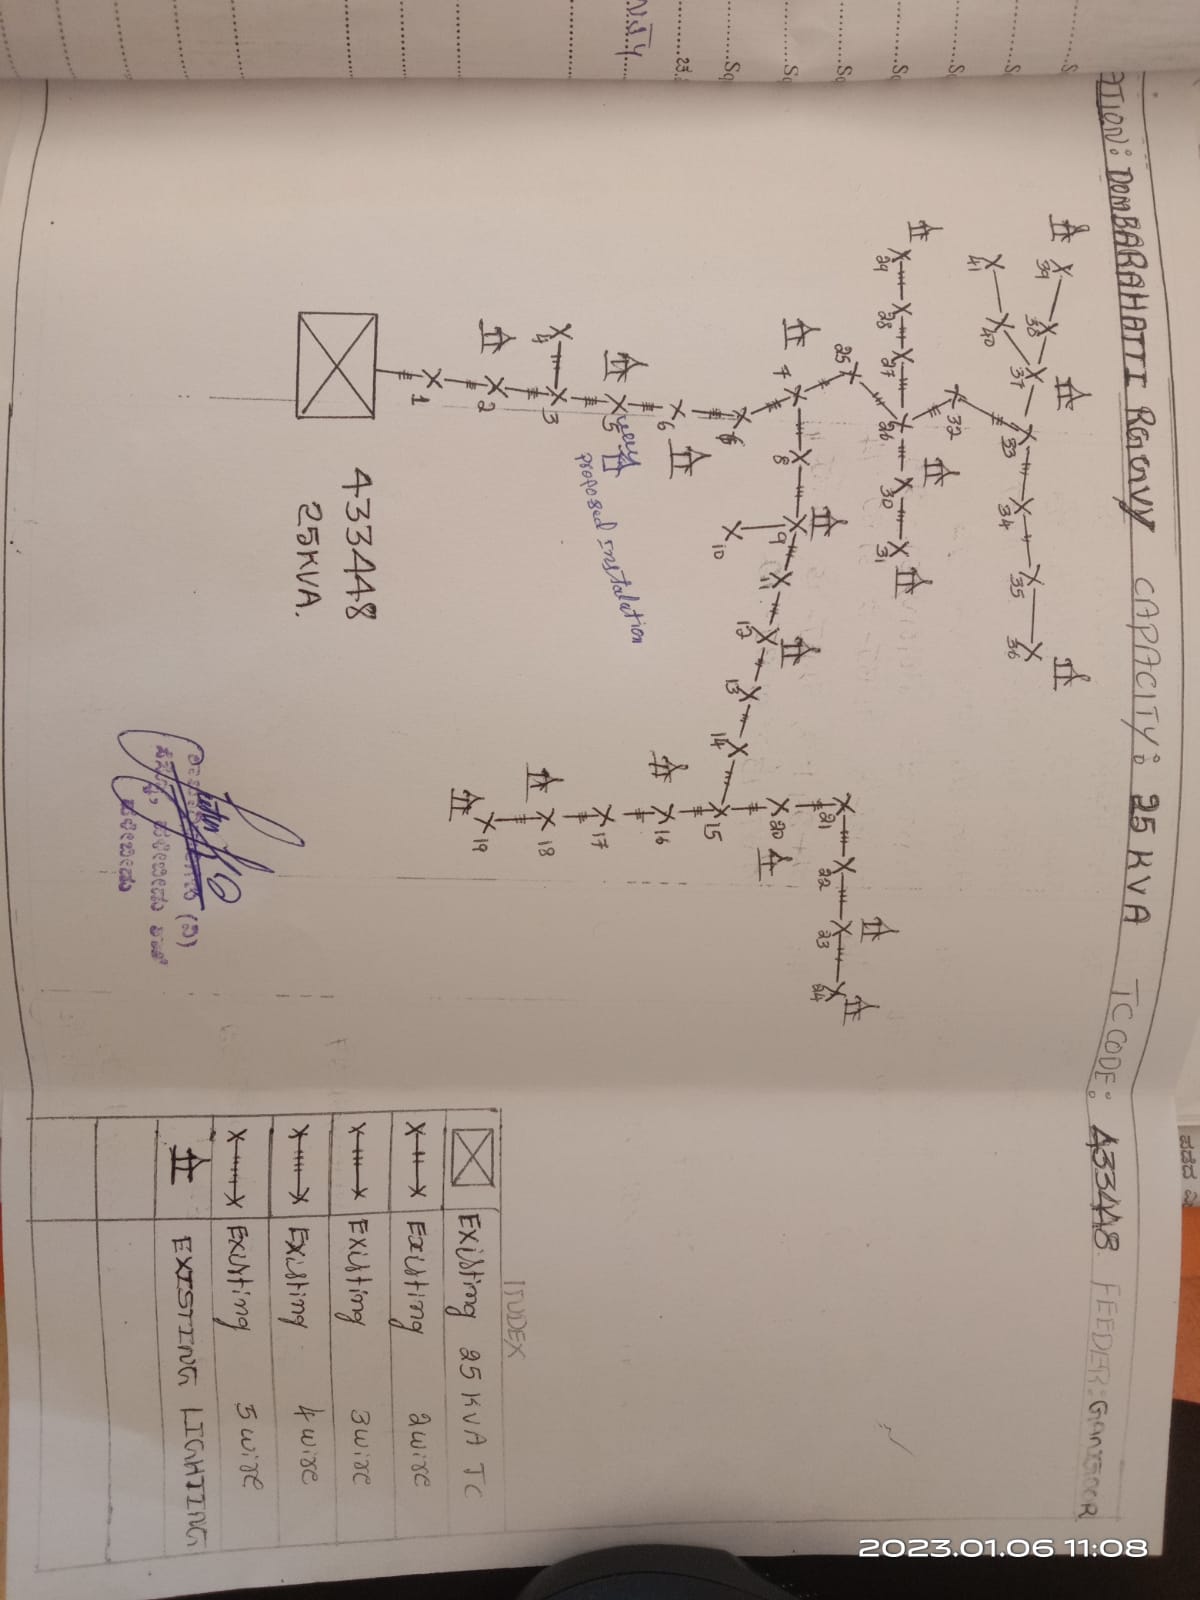 ATION: DOMBARAHATTI Roagvy CAPACITY: 25 KVA TC CODE: 433448 FEEDER: Ganjoor
39
38
37
41
40
33
34
35
36
32
29
28
27
26
30
31
25
7
8
9
10
11
12
13
14
15
16
17
18
19
20
21
22
23
24
6
6
5
4
3
2
1
proposed instalation
433448
25KVA.
INDEX
Existing 25 KVA TC
Existing 2 wire
Existing 3 wire
Existing 4 wire
Existing 5 wire
EXISTING LIGHTING
2023.01.06 11:08